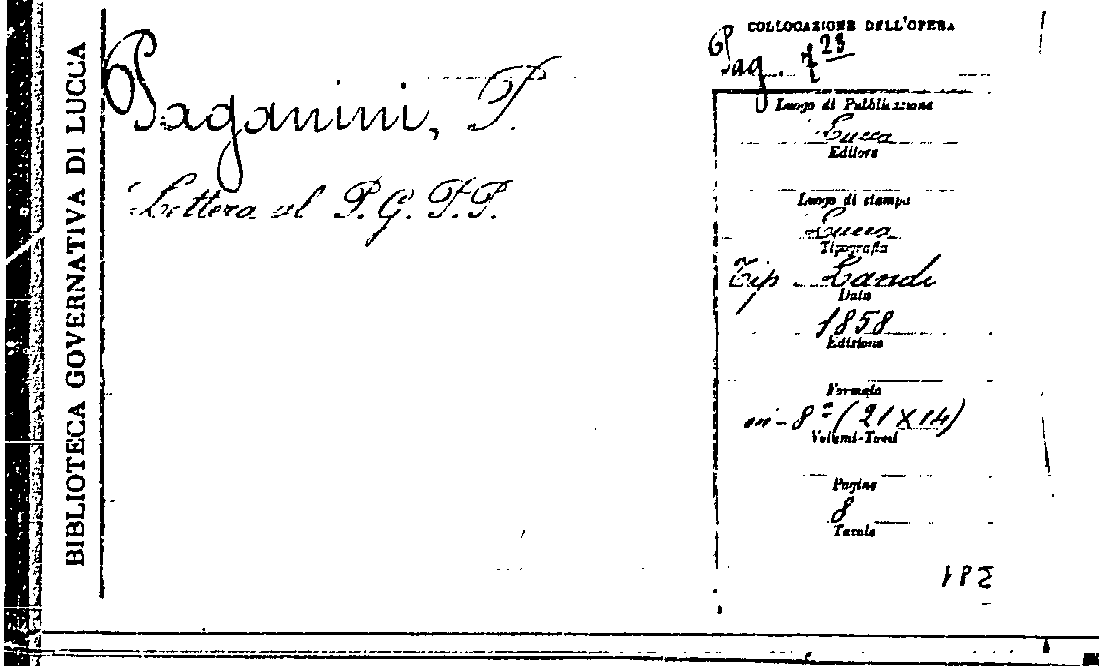 BIBLIOTECA GOVERNATIVA DI LUCCA
Paganini, P.
Lettera al P. G. P. P.
COLLOCAZIONE DELL'OPERA
Pag. 23
Luogo di Pubblicazione
Lucca
Editore
Luogo di stampa
Lucca
Tipografia
Tip. Landi
Data
1858
Edizione
Formato
in-8° (21 X 14)
Volumi-Tomi
Pagine
8
Tavole